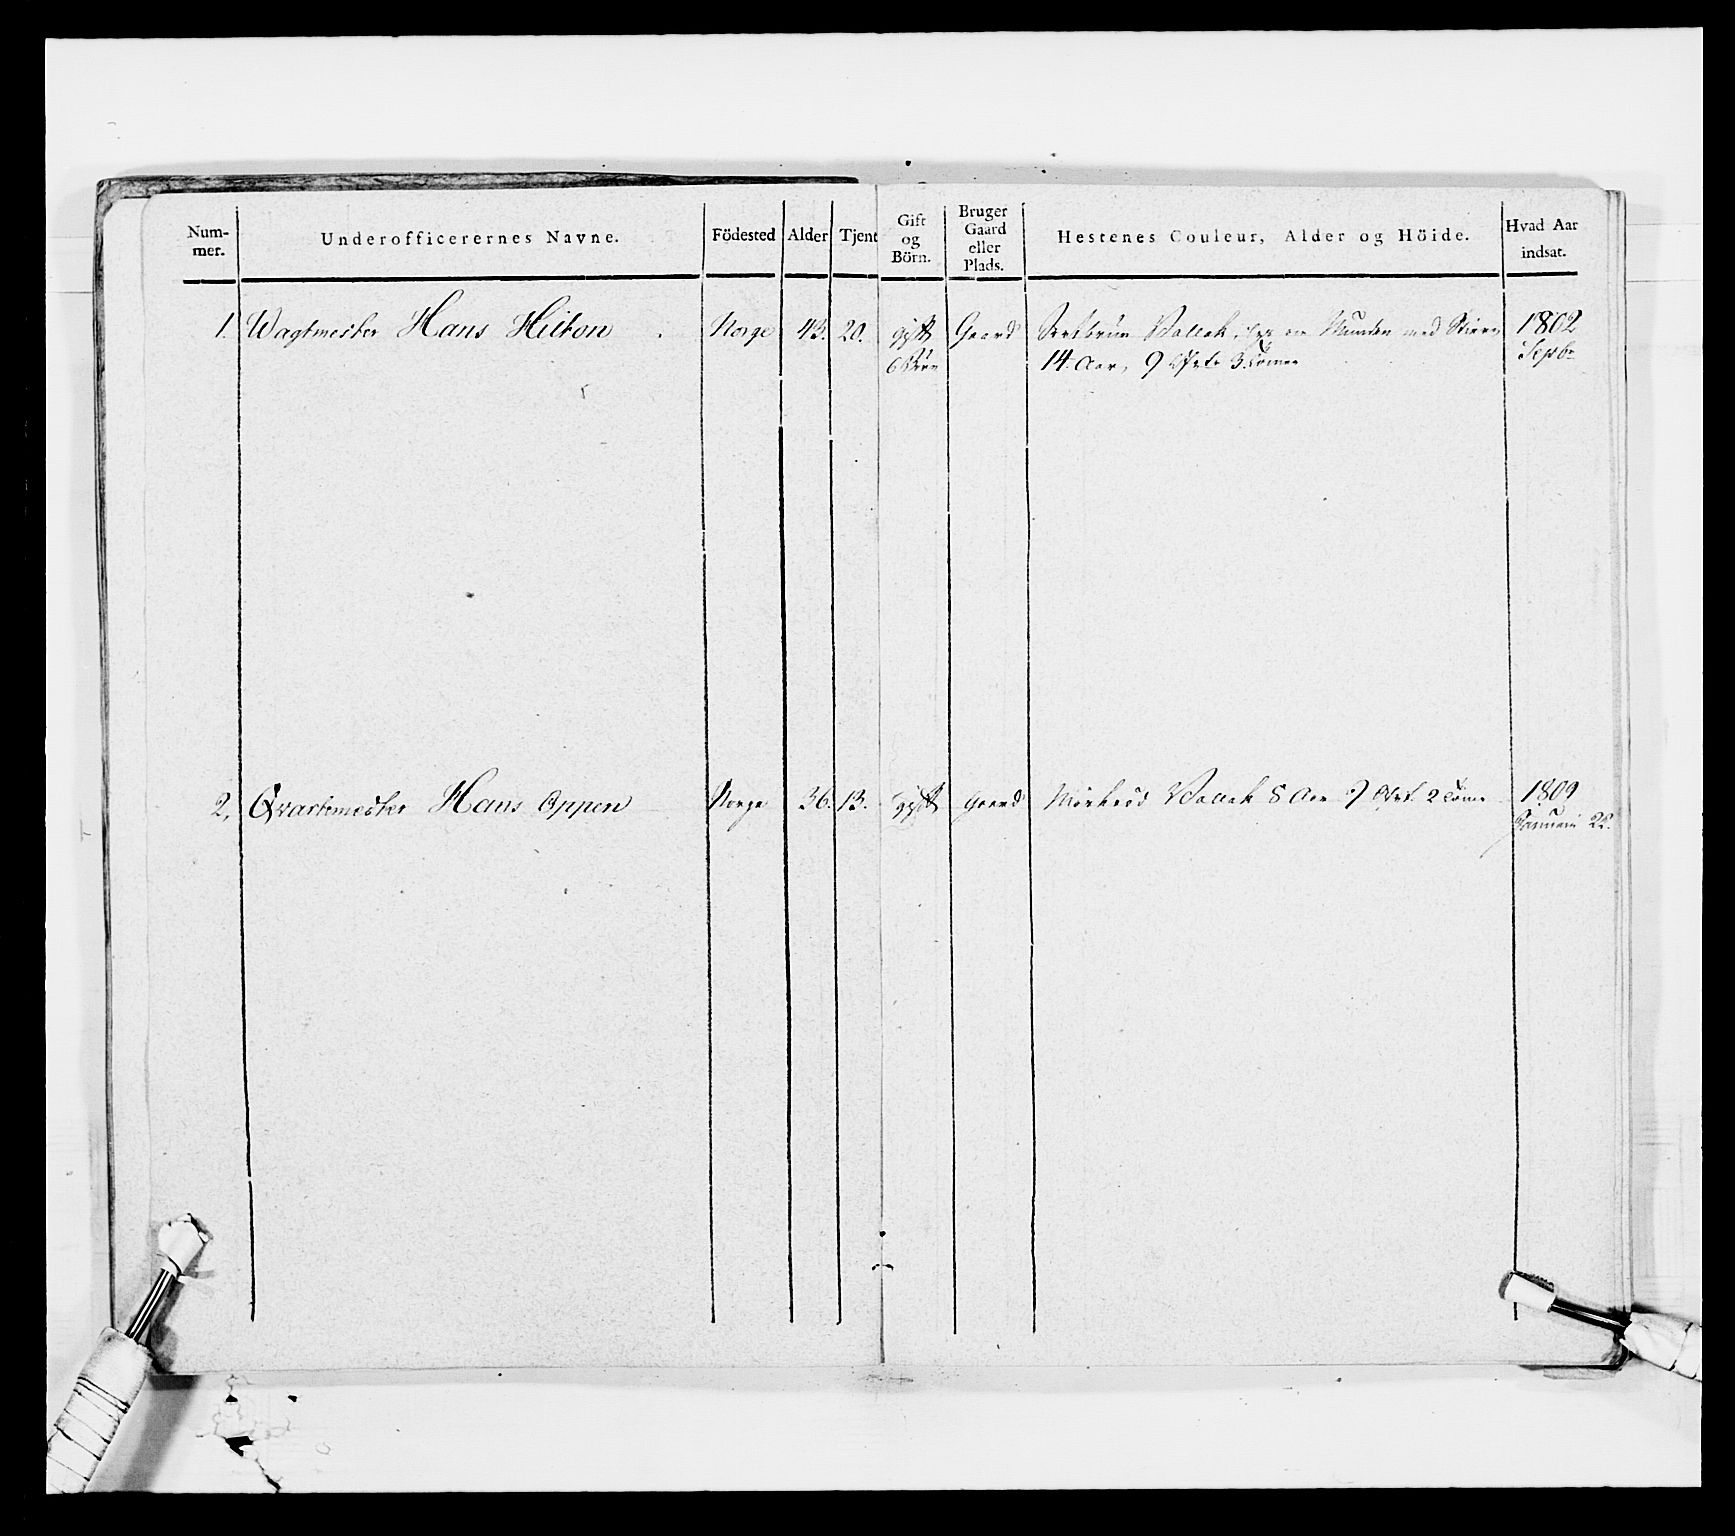 Num-
mer.
Underofficerernes Navne.
Födested
Alder
Tjent
Gift
og
Börn.
Bruger
Gaard
eller
Plads.
Hestenes Couleur, Alder og Höide.
Hvad Aar
indsat.
1. Wagtmester Hans Hilton Norge 43. 20. gift Gaard Vallak, med 1802
6 Börn 14 Aar, 9 3 Tomer Sepbr
2, Qvartermester Hans Oppen Norge 36. 13. gift Gaard Mörkröd Vallak 8 Aar 9 2 Tome 1809
Januari 22.